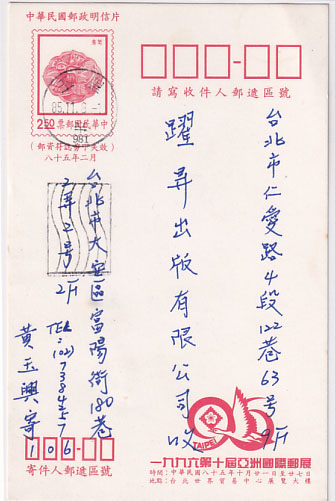 中華民國郵政明信片
2.50 票郵國民華中
85.11.
981
(郵資符誌剪下失效)
八十五年二月
請寫收件人郵遞區號
台北市仁愛路4段122巷63号9F
躍昇出版有限公司 收
台北市大安區富陽街180巷
2弄2号2F
TEL:(02)7384457
黃玉興寄
106
寄件人郵遞區號
TAIPEI
96
一九九六第十屆亞洲國際郵展
時間:中華民國八十五年十月廿一日至廿七日
地點:台北世界貿易中心展覽大樓